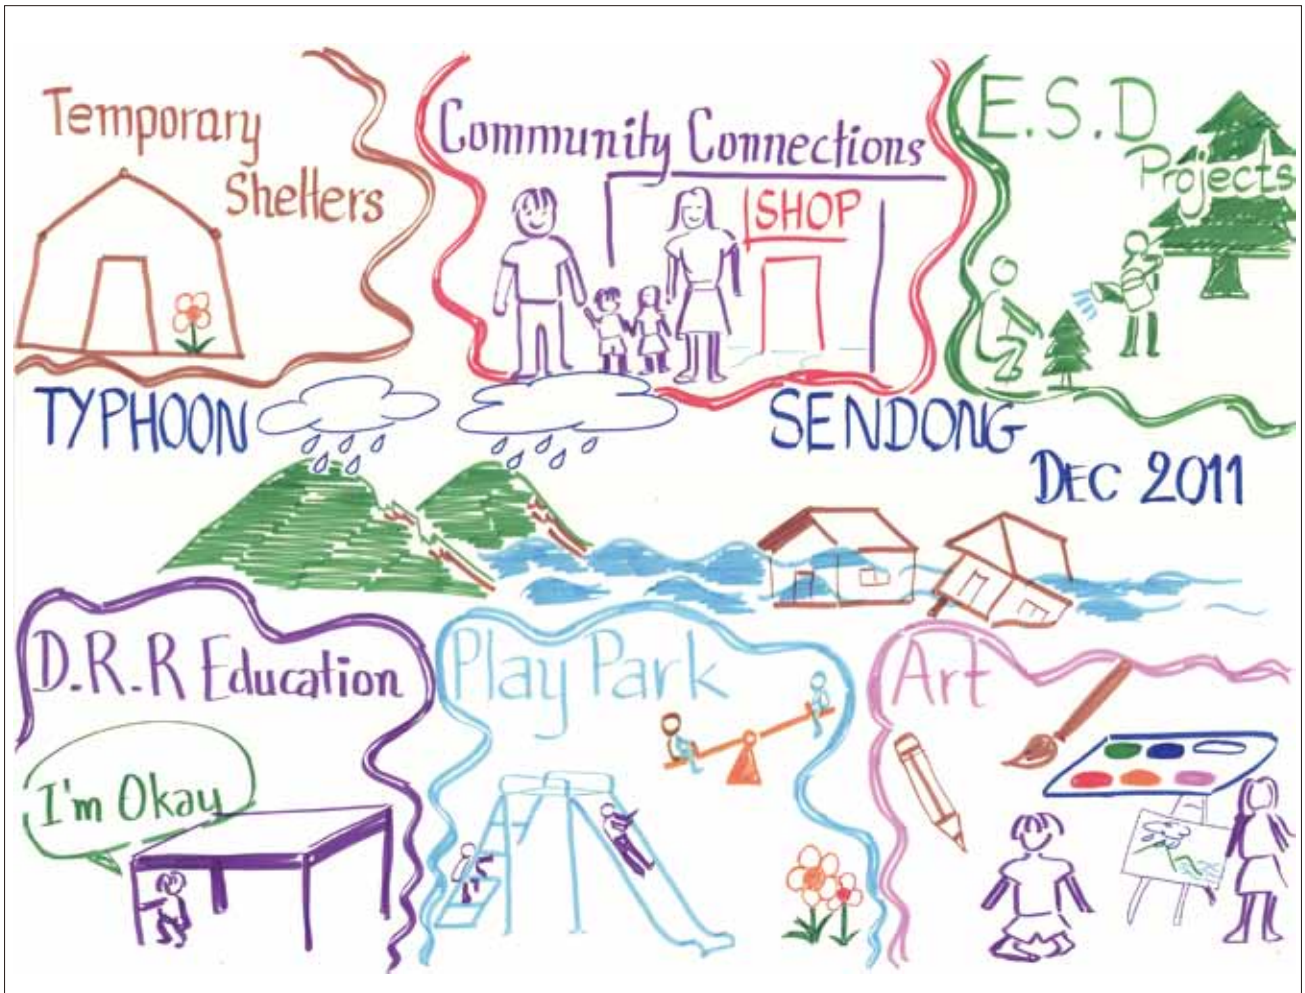 Temporary
Shelters
Community Connections
SHOP
E.S.D
Projects
TYPHOON
SENDONG
DEC 2011
D.R.R Education
I'm Okay
Play Park
Art